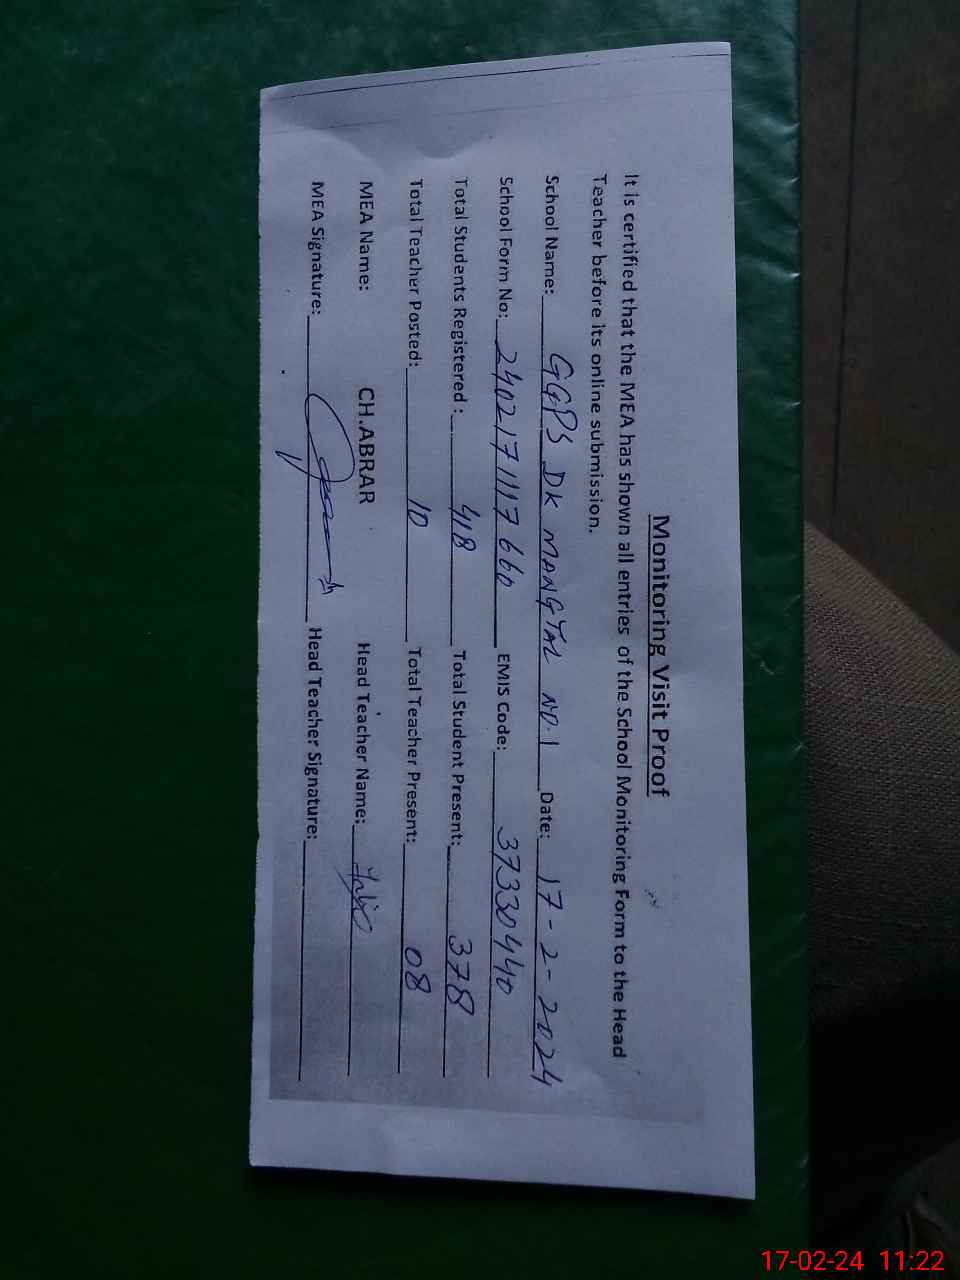 Monitoring Visit Proof
It is certified that the MEA has shown all entries of the School Monitoring Form to the Head
Teacher before its online submission.
School Name: GGPS DK MANGTAL NO.1 Date: 17-2-2024
School Form No: 2402171117660 EMIS Code: 37330440
Total Students Registered : 418 Total Student Present: 378
Total Teacher Posted: 10 Total Teacher Present: 08
MEA Name: CH.ABRAR Head Teacher Name:
MEA Signature: Head Teacher Signature:
17-02-24 11:22